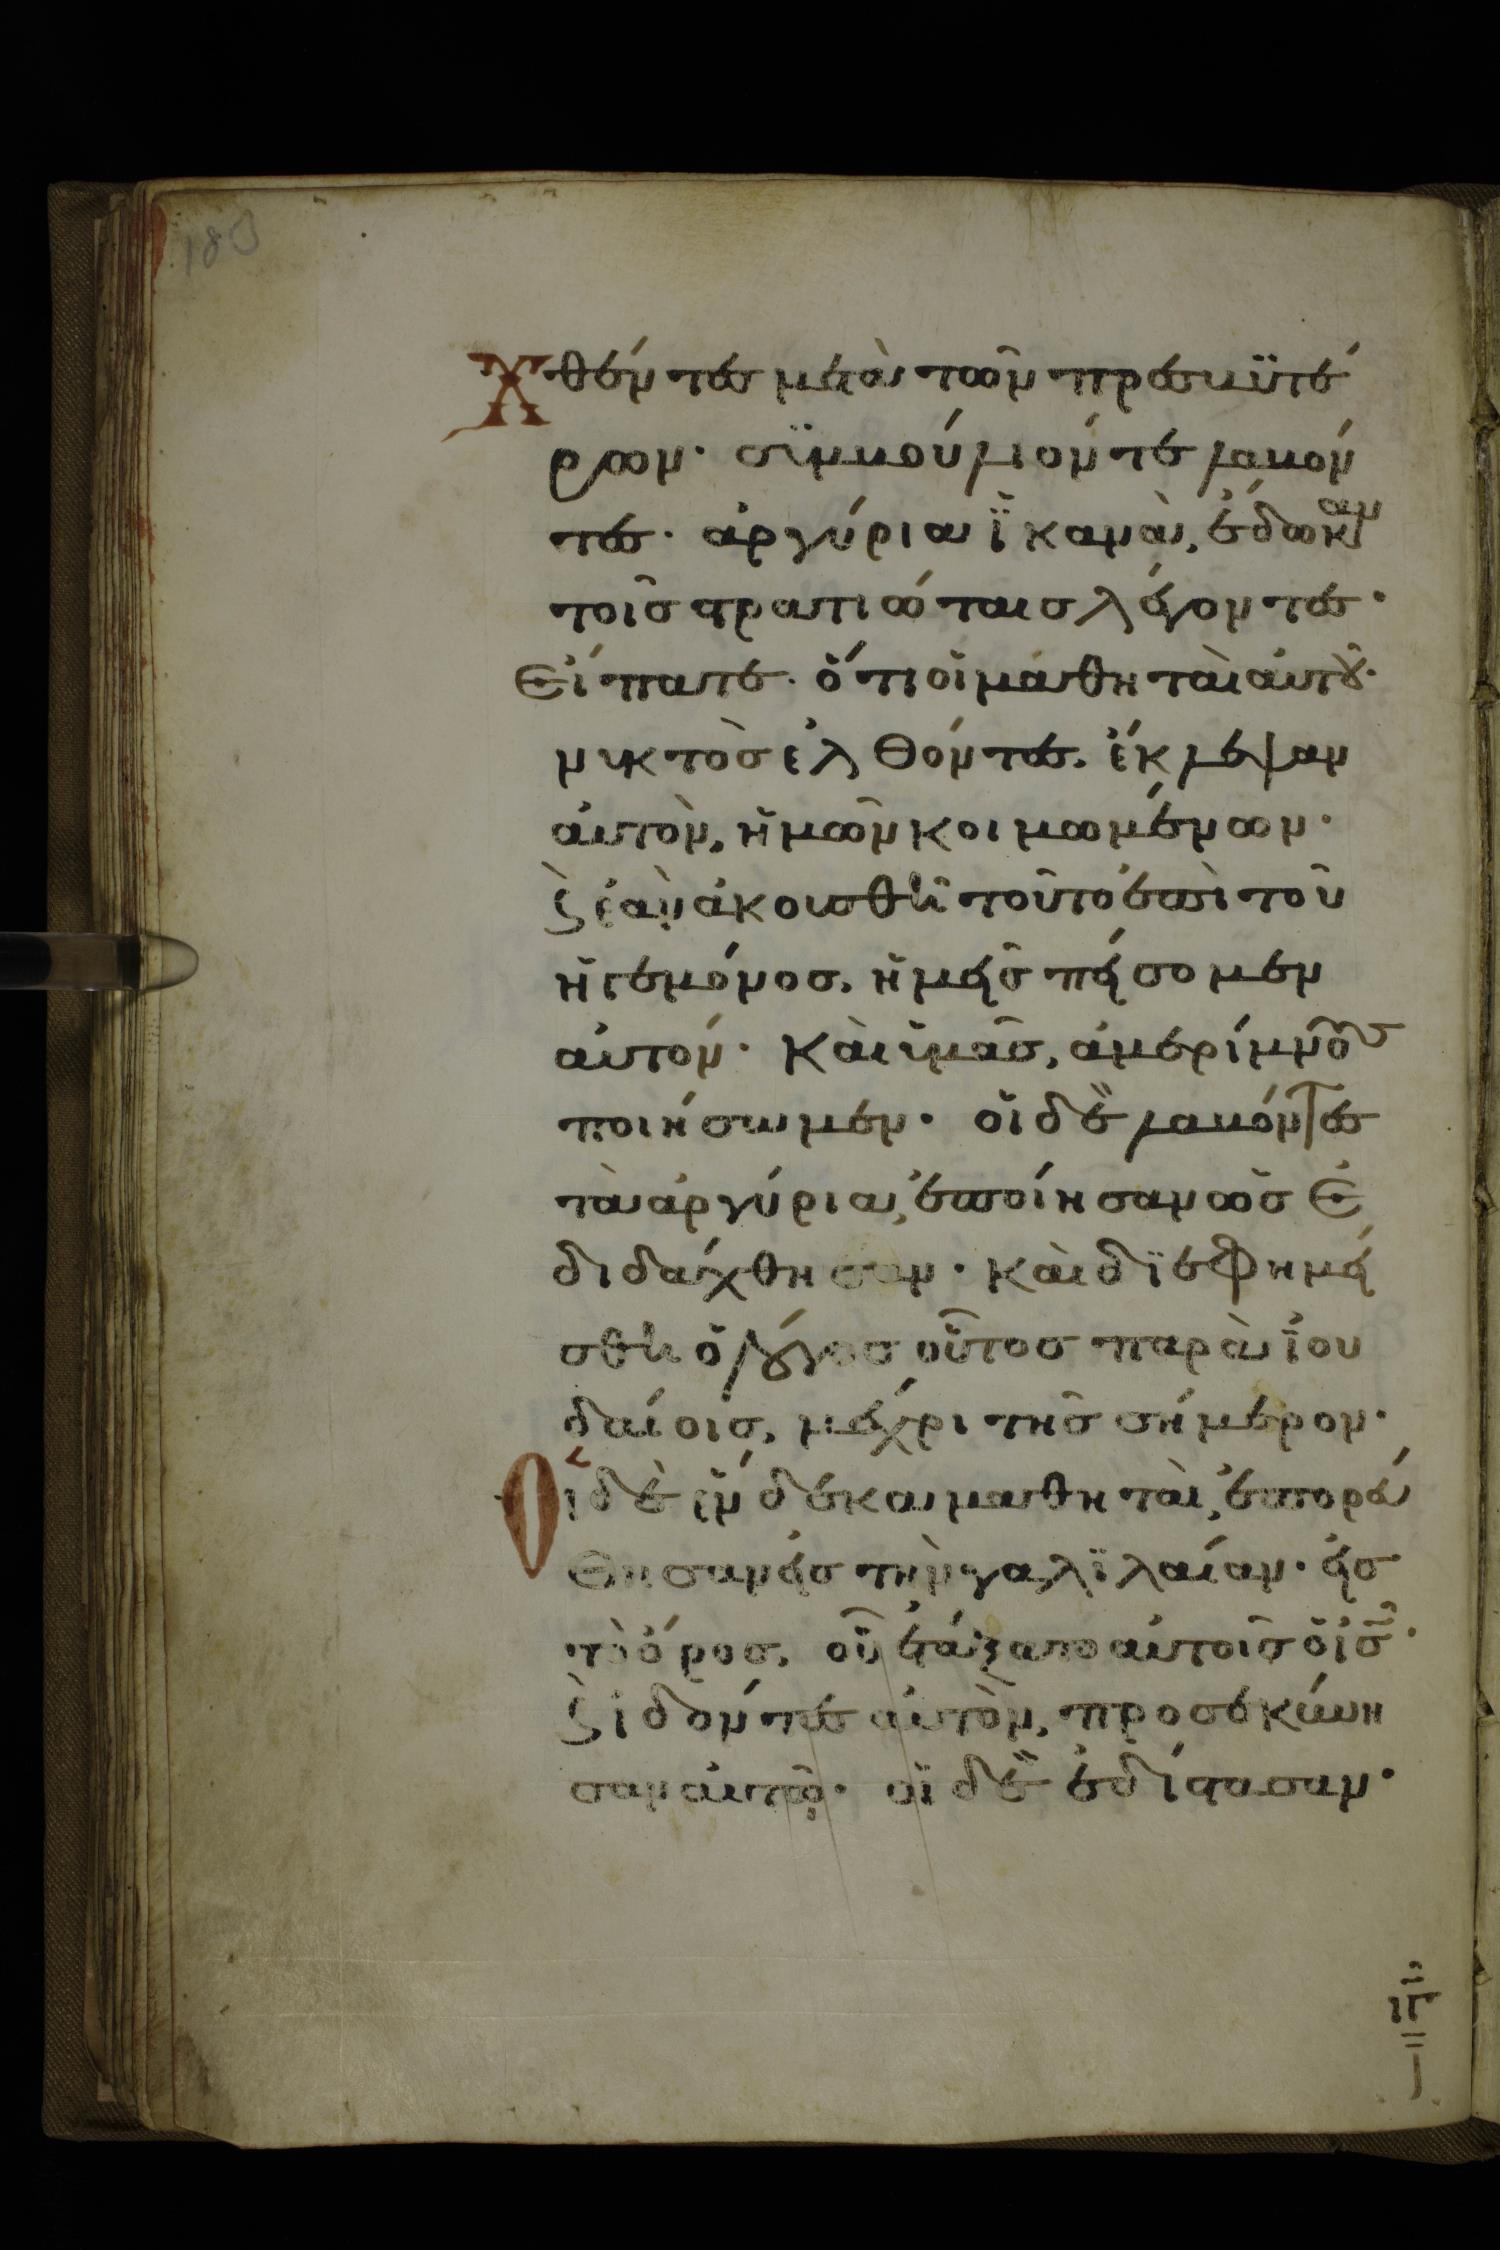 183
χθέντες μετὰ τῶν πρεσβϋτέ
ρων· σϊμβούλιόν τε λαβόν
τες· ἀργύρια ἵκανὰ, ἔδωκαν
τοῖς στρατιώταις λέγοντες·
Εἴπατε· ὅτι οἱ μαθηταὶ αὐτοῦ·
νυκτὸς ἐλθόντες. ἔκλεψαν
αὐτὸν, ἡμῶν κοιμωμένων·
κ̀ ἐὰν ἀκουσθῆ τοῦτο ἐπὶ τοῦ
ἡγεμόνος. ἡμεῖς πείσομεν
αὐτόν· καὶ ὑμᾶς, ἀμερίμνους
ποιήσωμεν· οἱ δὲ λαβόντες
τὰ ἀργύρια, ἐποίησαν ὡς Ε
διδάχθησαν· καὶ δϊεφημί
σθη ὁ λόγος οὗτος παρὰ ἰου
δαίοις, μέχρι τῆς σήμερον·
Οἱ δὲ ἕνδεκα μαθηταὶ, ἐπορεύ
θησαν εἰς τὴν γαλϊλαίαν· εἰς
τὸ ὄρος, οὗ ἐτάξατο αὐτοῖς ὁ ἰς̅·
κ̀ ἰδόντες αὐτὸν, προσεκύνη
σαν αὐτῷ· οἱ δὲ ἐδίστασαν·